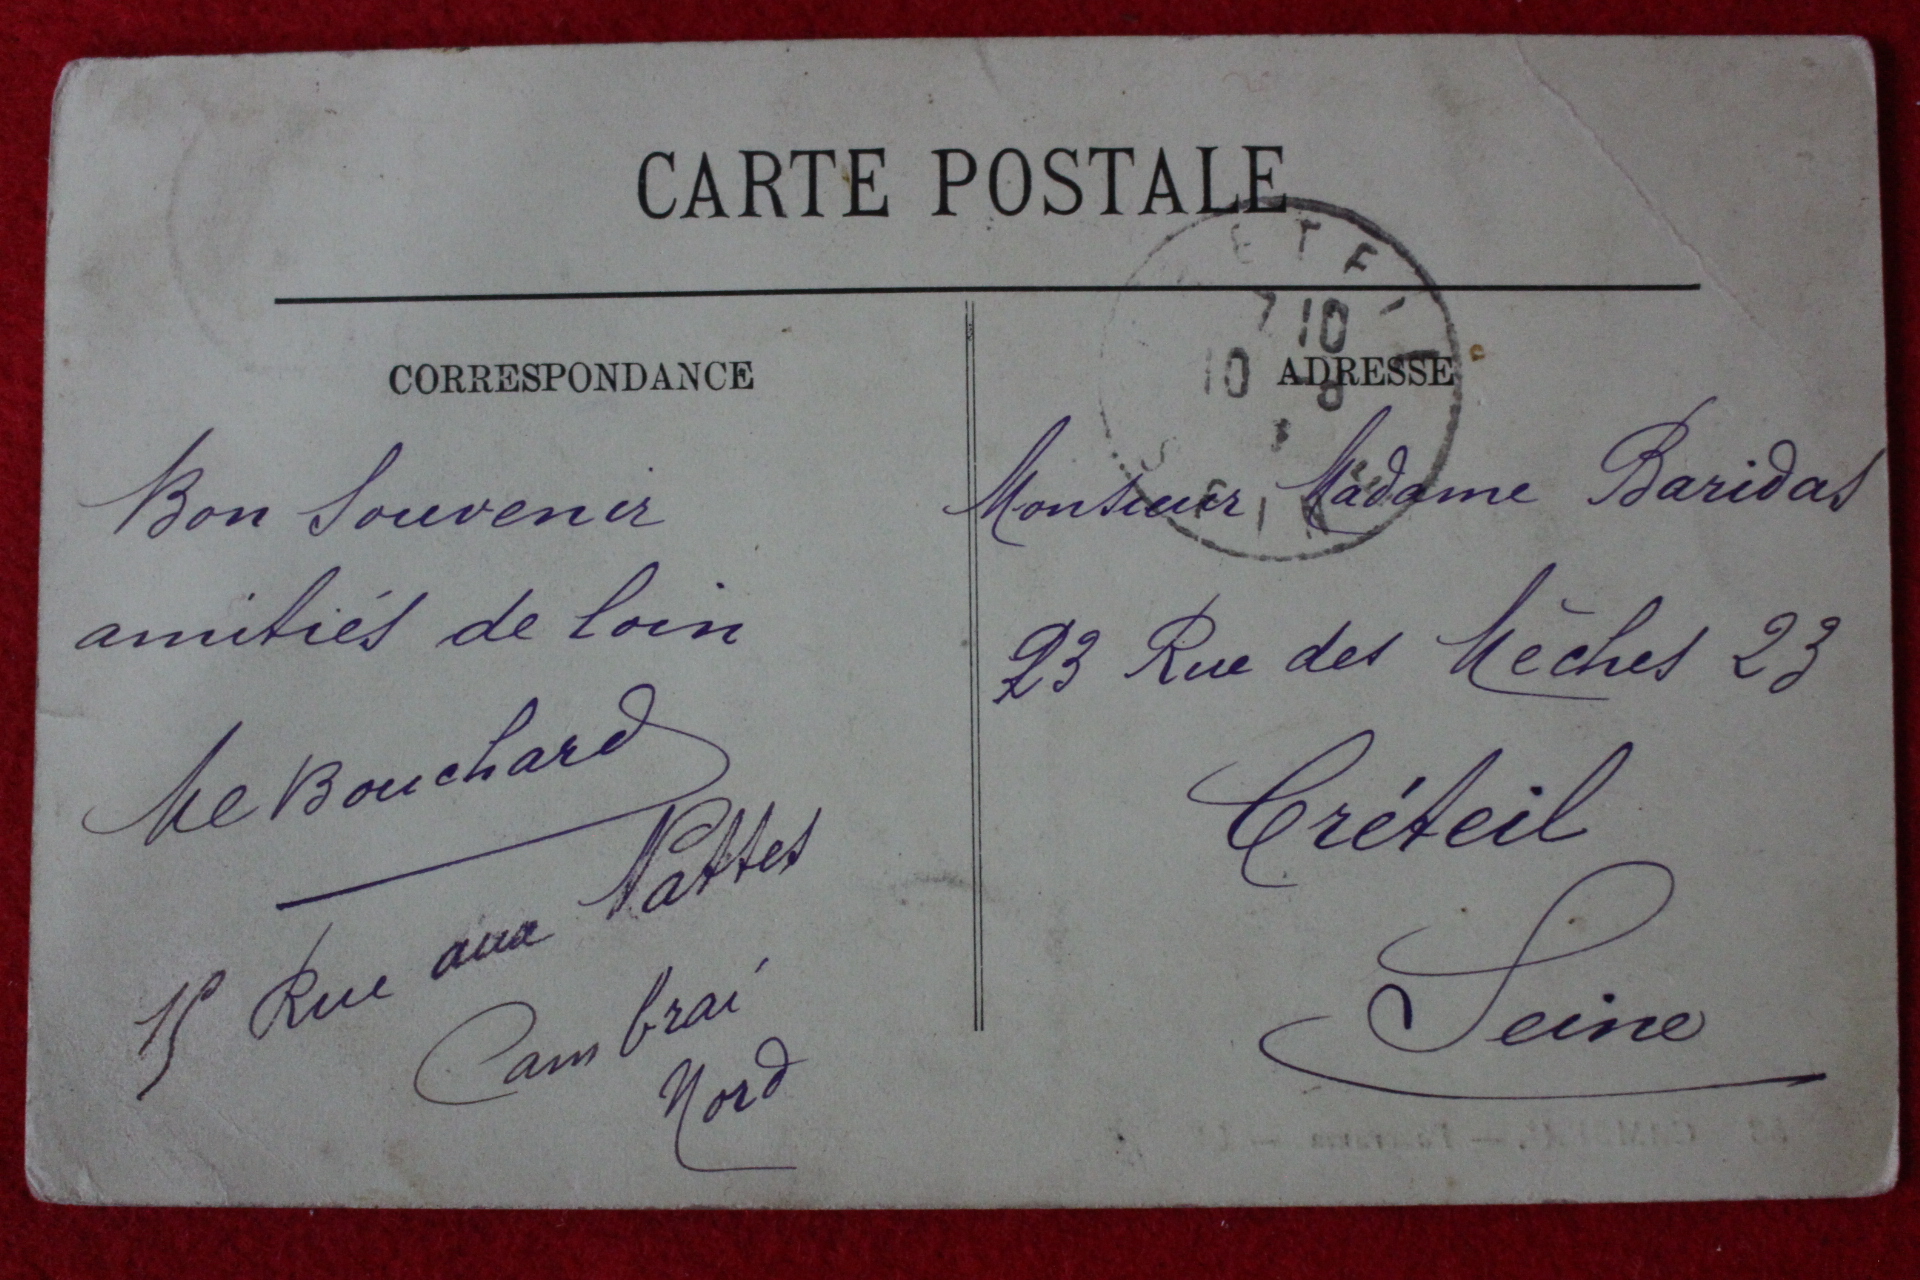 CARTE POSTALE
CORRESPONDANCE
Bon Souvenir
amitiés de loin
Me Bouchard
15 Rue aux Nattes
Cambrai
Nord
ADRESSE
Monsieur Madame Baridas
23 Rue des Mêches 23
Créteil
Seine
ETEI
7 10
10 8